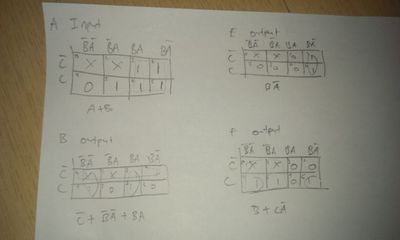 A Input
B̅A̅ B̅A BA BA̅
C̅ X X 1 1
C 0 1 1 1
A+B
E output
B̅A̅ B̅A BA BA̅
C̅ X X 0
C 0 0 0
BA̅
B output
B̅A̅ B̅A BA BA̅
C̅ X X 1
C 0 1 0
C̅ + B̅A̅ + BA
F output
B̅A̅ B̅A BA BA̅
C̅ X X 0 0
C 1 1 0 1
B̅ + CA̅